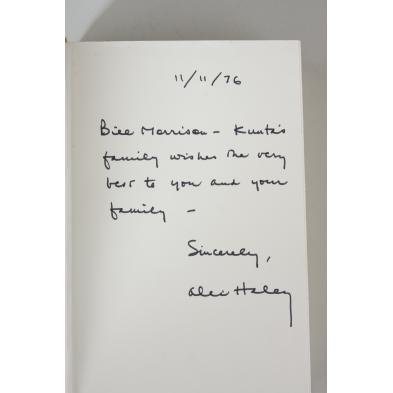 11/11/76
Bill Morrison - Kunta's
family wishes the very
best to you and your
family -
Sincerely,
Alex Haley